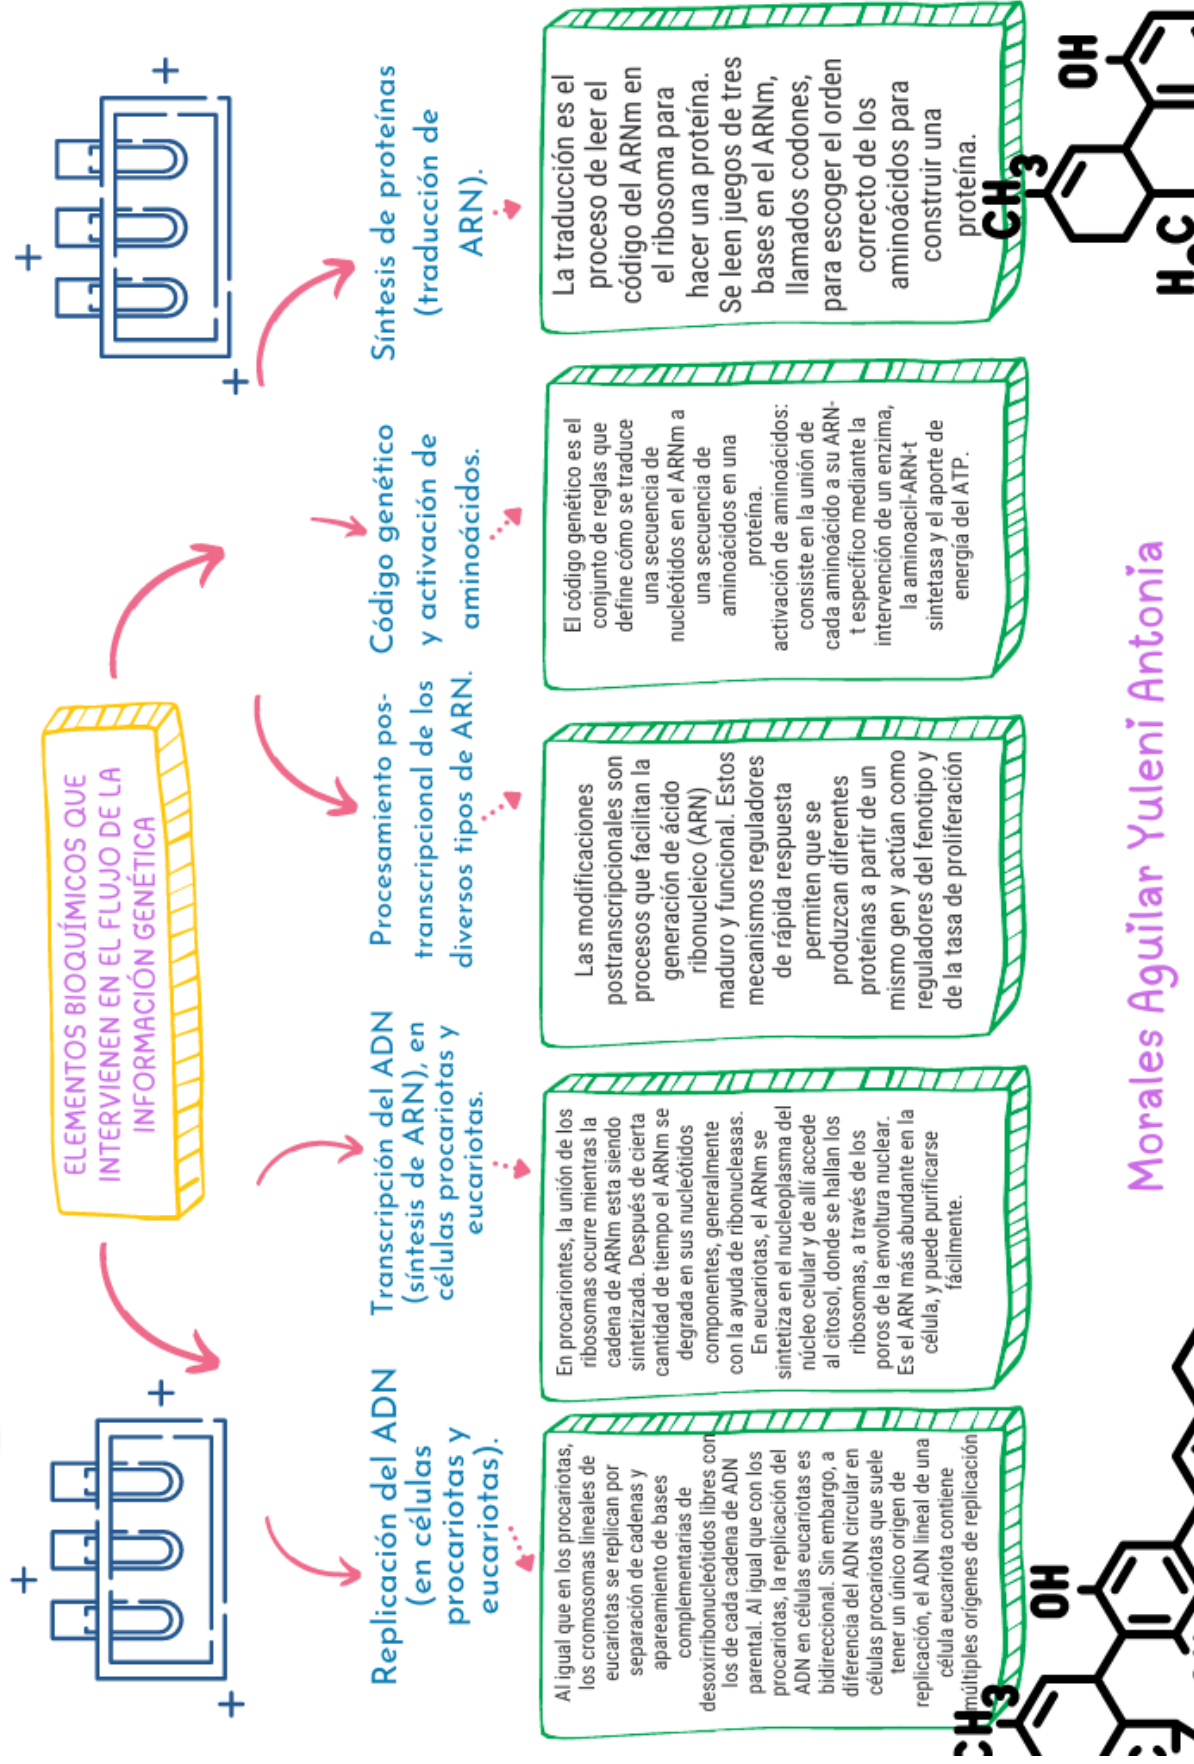 ELEMENTOS BIOQUÍMICOS QUE
INTERVIENEN EN EL FLUJO DE LA
INFORMACIÓN GENÉTICA
Replicación del ADN
(en células
procariotas y
eucariotas).
Al igual que en los procariotas,
los cromosomas lineales de
eucariotas se replican por
separación de cadenas y
apareamiento de bases
complementarias de
desoxirribonucleótidos libres con
los de cada cadena de ADN
parental. Al igual que con los
procariotas, la replicación del
ADN en células eucariotas es
bidireccional. Sin embargo, a
diferencia del ADN circular en
células procariotas que suele
tener un único origen de
replicación, el ADN lineal de una
célula eucariota contiene
múltiples orígenes de replicación
Transcripción del ADN
(síntesis de ARN), en
células procariotas y
eucariotas.
En procariontes, la unión de los
ribosomas ocurre mientras la
cadena de ARNm esta siendo
sintetizada. Después de cierta
cantidad de tiempo el ARNm se
degrada en sus nucleótidos
componentes, generalmente
con la ayuda de ribonucleasas.
En eucariotas, el ARNm se
sintetiza en el nucleoplasma del
núcleo celular y de allí accede
al citosol, donde se hallan los
ribosomas, a través de los
poros de la envoltura nuclear.
Es el ARN más abundante en la
célula, y puede purificarse
fácilmente.
Procesamiento pos-
transcripcional de los
diversos tipos de ARN.
Las modificaciones
postranscripcionales son
procesos que facilitan la
generación de ácido
ribonucleico (ARN)
maduro y funcional. Estos
mecanismos reguladores
de rápida respuesta
permiten que se
produzcan diferentes
proteínas a partir de un
mismo gen y actúan como
reguladores del fenotipo y
de la tasa de proliferación
Código genético
y activación de
aminoácidos.
El código genético es el
conjunto de reglas que
define cómo se traduce
una secuencia de
nucleótidos en el ARNm a
una secuencia de
aminoácidos en una
proteína.
activación de aminoácidos:
consiste en la unión de
cada aminoácido a su ARN-
t específico mediante la
intervención de un enzima,
la aminoacil-ARN-t
sintetasa y el aporte de
energía del ATP.
Síntesis de proteínas
(traducción de
ARN).
La traducción es el
proceso de leer el
código del ARNm en
el ribosoma para
hacer una proteína.
Se leen juegos de tres
bases en el ARNm,
llamados codones,
para escoger el orden
correcto de los
aminoácidos para
construir una
proteína.
CH3
OH
CH3
OH
H₃C
Morales Aguilar Yuleni Antonia